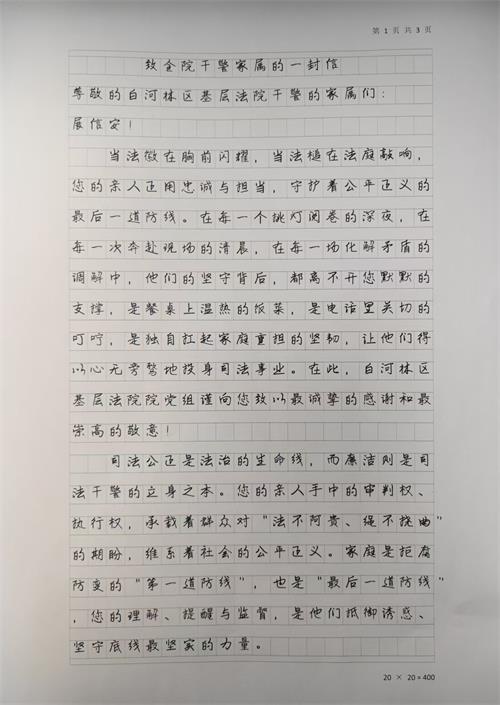 第 1 页 共 3 页
致全院干警家属的一封信
尊敬的白河林区基层法院干警的家属们：
展信安！
当法徽在胸前闪耀，当法槌在法庭敲响，
您的亲人正用忠诚与担当，守护着公平正义的
最后一道防线。在每一个挑灯阅卷的深夜，在
每一次奔赴现场的清晨，在每一场化解矛盾的
调解中，他们的坚守背后，都离不开您默默的
支撑，是餐桌上温热的饭菜，是电话里关切的
叮咛，是独自扛起家庭重担的坚韧，让他们得
以心无旁骛地投身司法事业。在此，白河林区
基层法院院党组谨向您致以最诚挚的感谢和最
崇高的敬意！
司法公正是法治的生命线，而廉洁则是司
法干警的立身之本。您的亲人手中的审判权、
执行权，承载着群众对“法不阿贵、绳不挠曲”
的期盼，维系着社会的公平正义。家庭是拒腐
防变的“第一道防线”，也是“最后一道防线”
，您的理解、提醒与监督，是他们抵御诱惑、
坚守底线最坚实的力量。
20 × 20 = 400